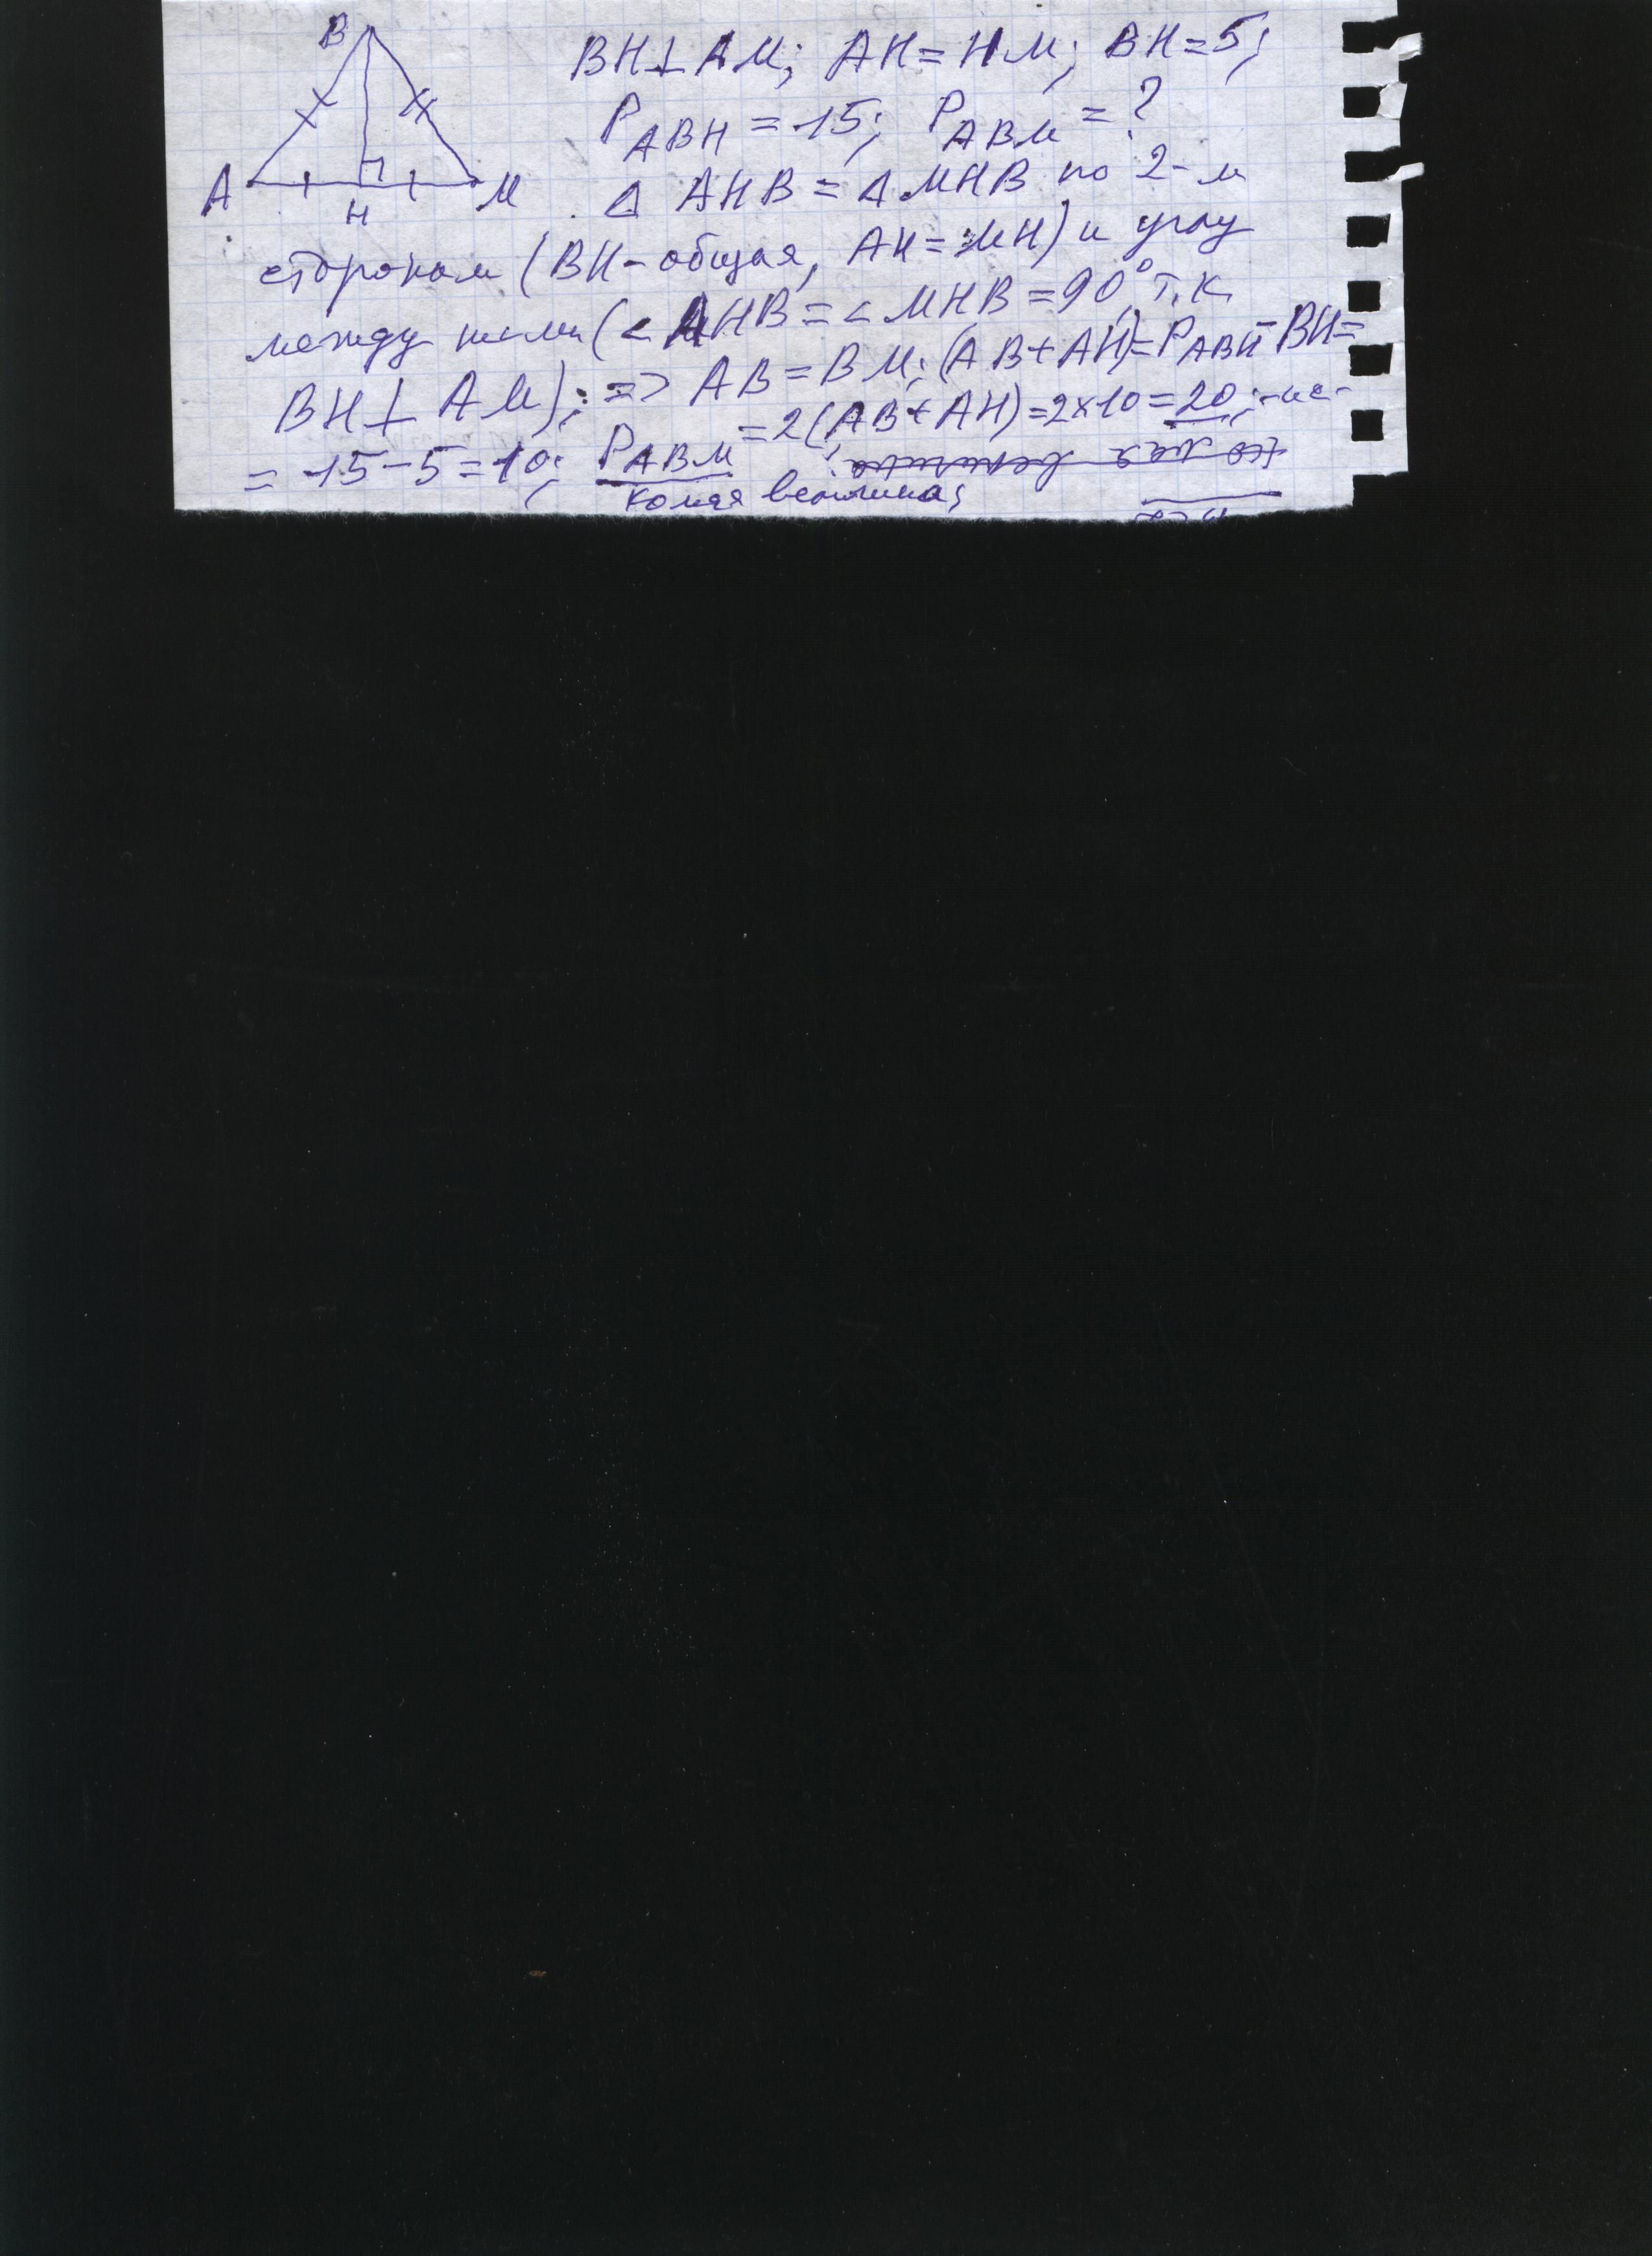 B
A
H
M
BH⊥AM; AH=HM; BH=5;
P ABH =15; P ABM =?
Δ AHB = Δ MHB по 2-м
сторонам (BH-общая, AH=MH) и углу
между ними (∠AHB=∠MHB=90°, т.к.
BH⊥AM); => AB=BM; (AB+AH)=P ABH -BH=
=15-5=10; P ABM =2(AB+AH)=2×10=20;-ис-
комая величина;